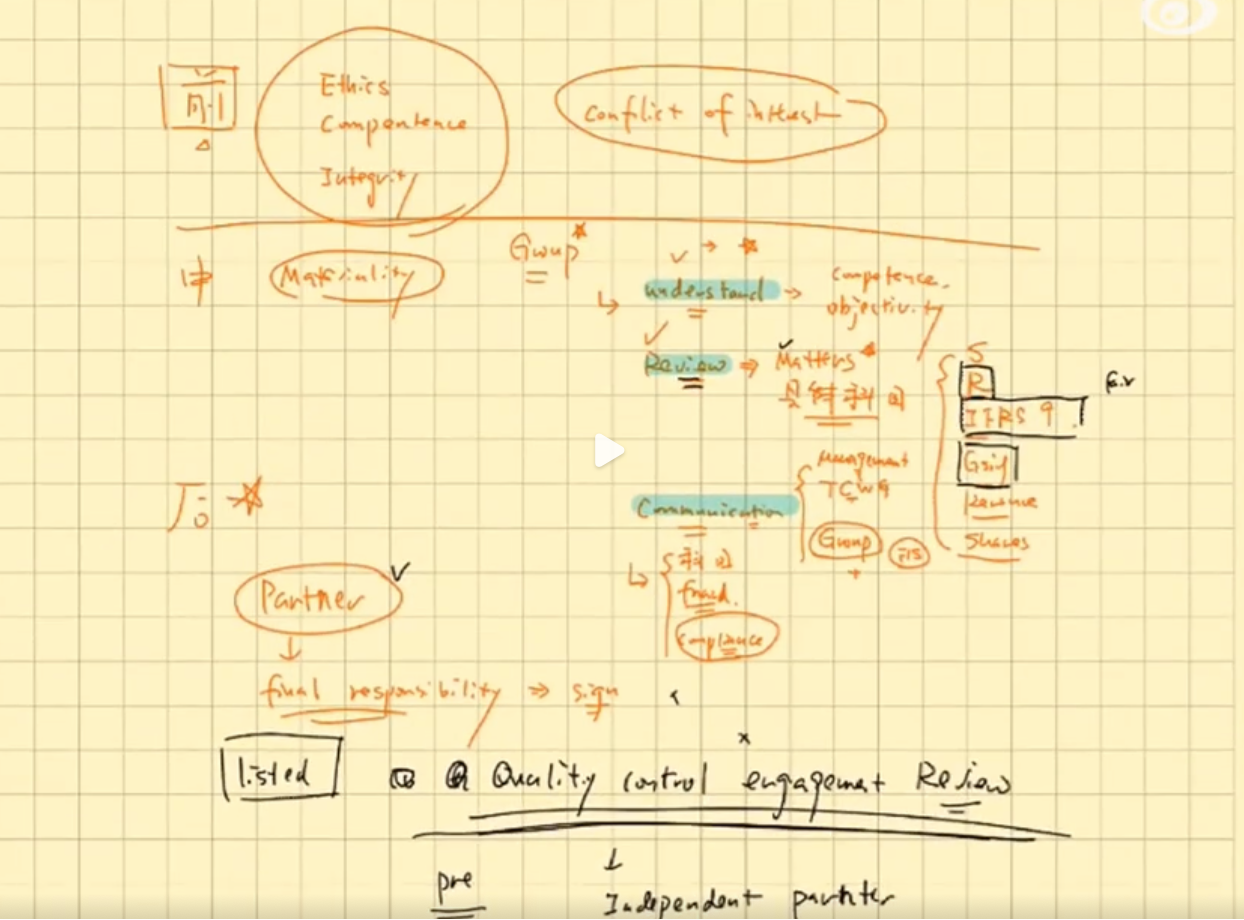 Ethics
Compentence
Integrity
Conflict of interest
Materiality
Group
understand
competence.
objectivity
Review
Matters
S
R
IFRS 9
fair
management
TCWG
Communication
Group
Revenue
Shares
科目
fraud.
compliance
Partner
final responsibility ⇒ sign
listed
Quality control engagement Review
pre
Independent partner